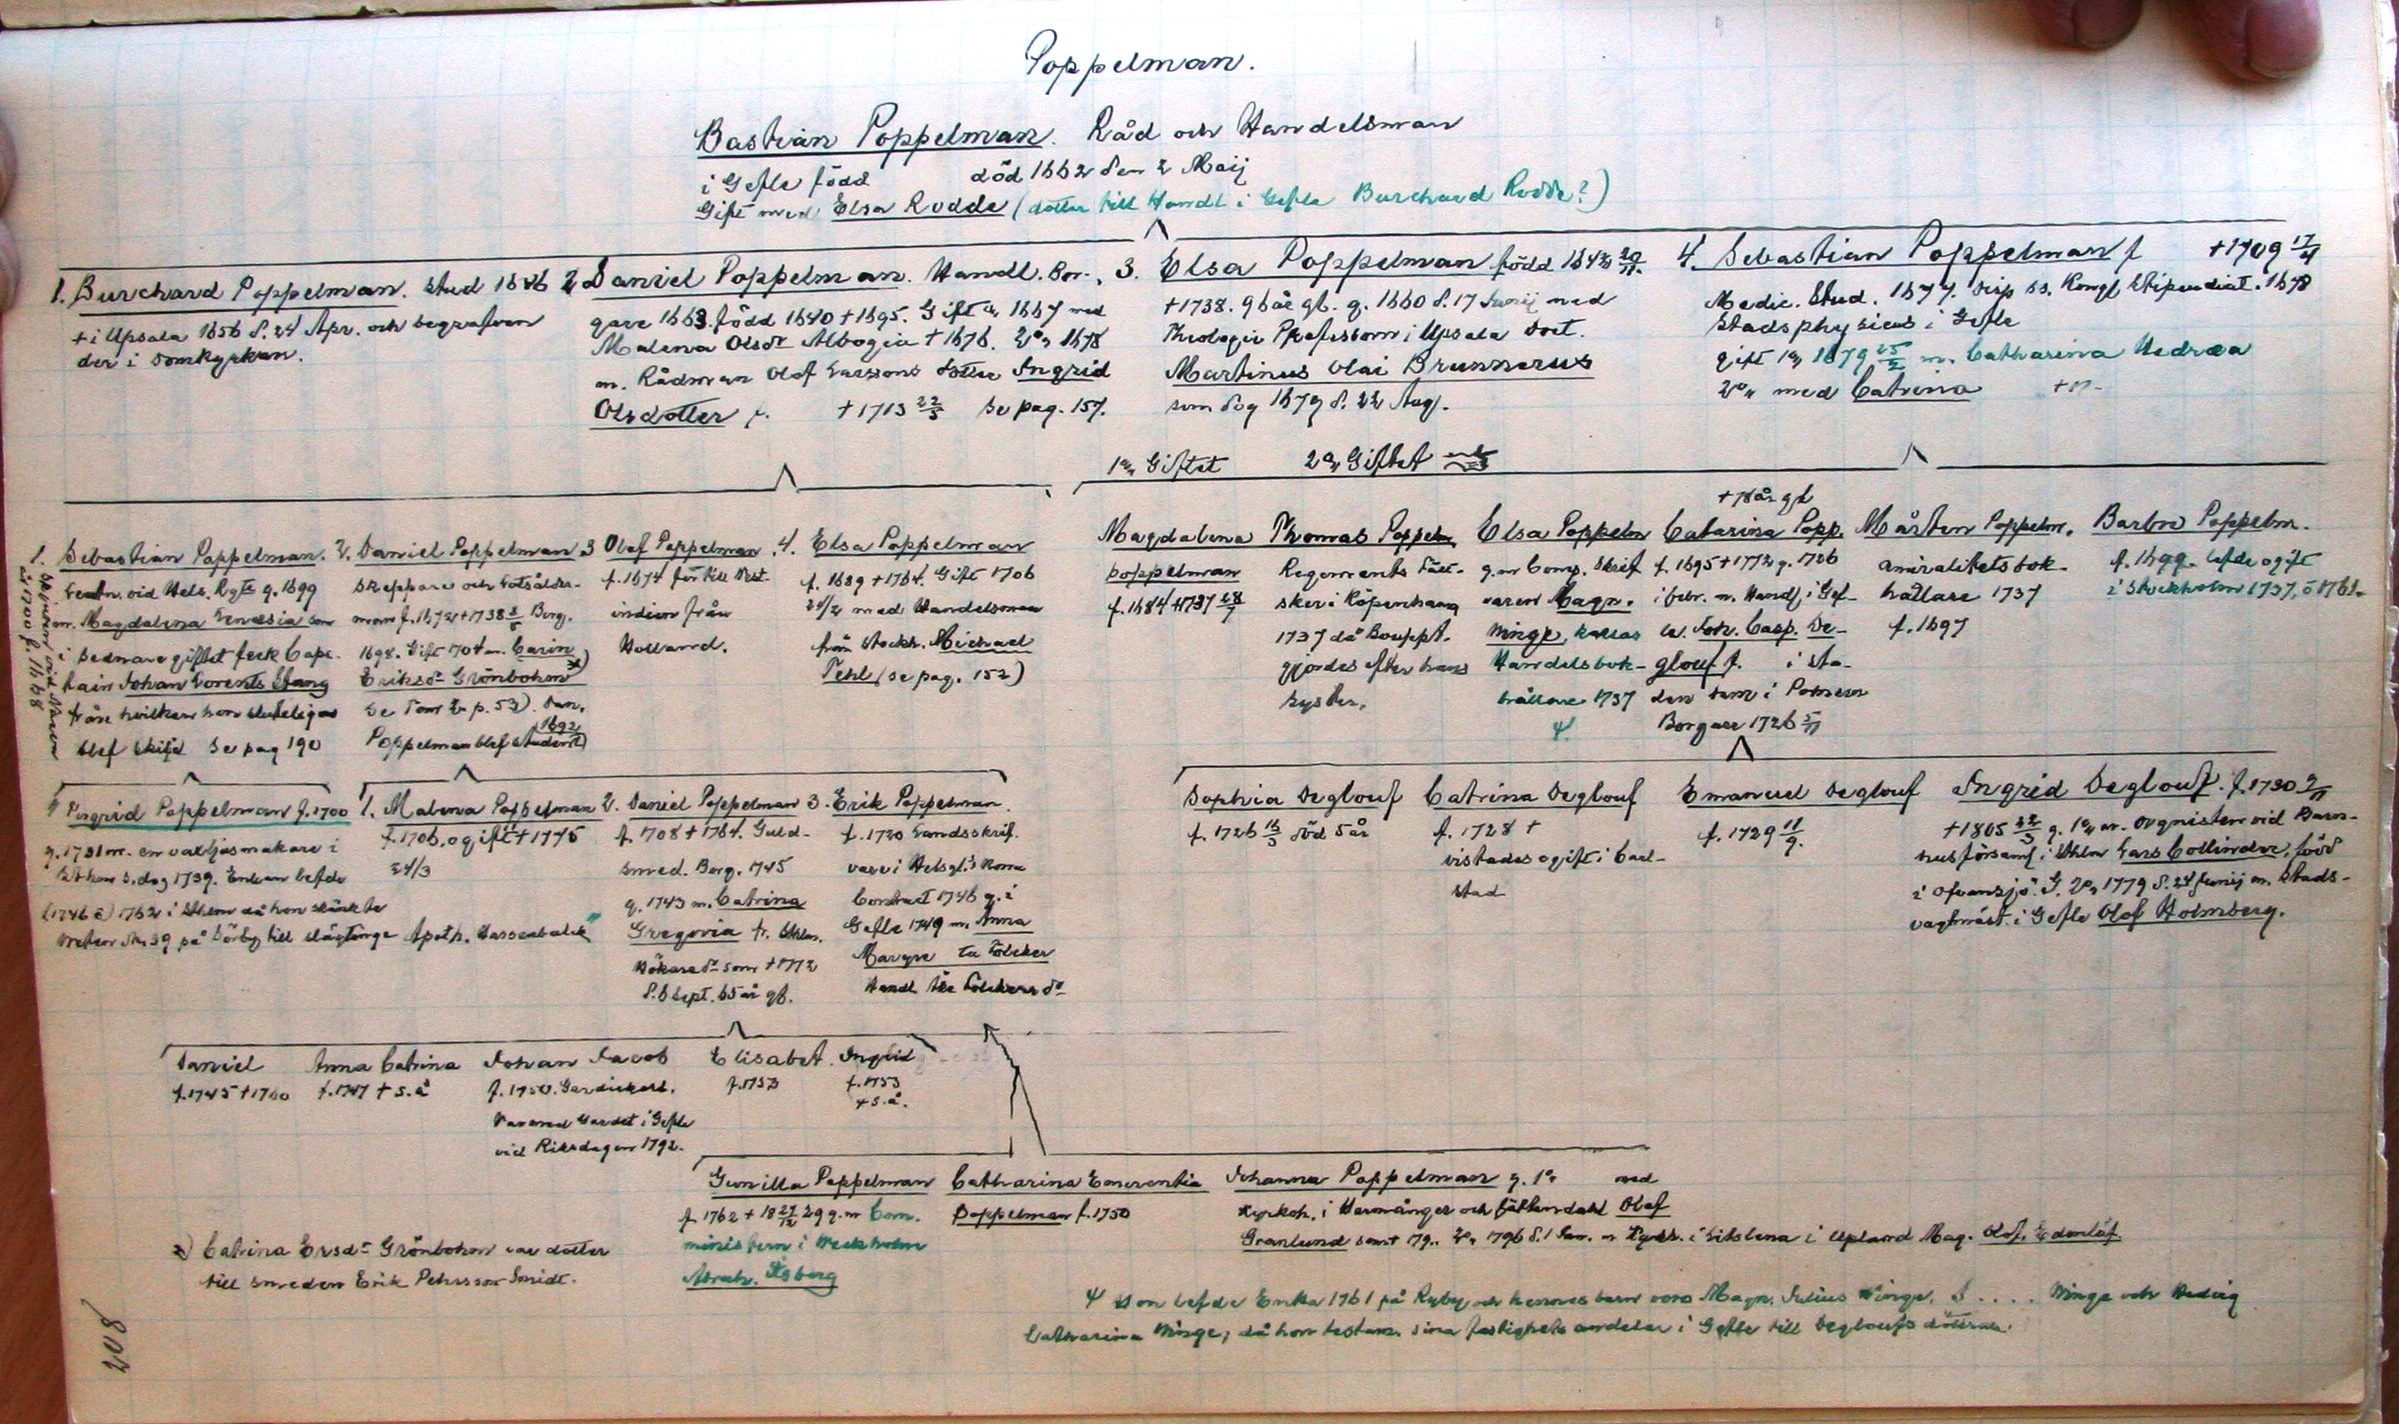 Poppelman.
Bastian Poppelman. Råd och Handelsman
i Gefle född död 1662 den 2 Maij
Gift med Elsa Rodde (dotter till Handl i Gefle Burchard Rodde?)
1. Burchard Poppelman. Stud 1646
+ i Upsala 1656 d. 24 Apr. och begrafven
der i Domkyrkan.
2 Daniel Poppelman. Handl. Bor-
gare 1663. född 1640 + 1695. Gift 1667 med
Malena Olsdr Albogia + 1676. 2o 1678
m. Rådman Olof Larssons dotter Ingrid
Olsdotter f. + 1713 22/3 Se pag. 157.
3. Elsa Poppelman född 1643 20/11.
+ 1738. 96 år gl. g. 1660 d. 17 Junij med
Theologie Professorn i Upsala Doct.
Martinus Olai Brunnerus
som dog 1679 d. 22 Aug.
4. Sebastian Poppelman f + 1709 17/4
Medic. Stud. 1677. Disp ss. Kongl Stipendiat. 1678
Stadsphysicus i Gefle
gift 1o 1679 25/2 m. Catharina Hedræa
2o med Catrina + 17-
1a Giftet 2a Giftet
1. Sebastian Poppelman.
Fentr. vid Hels. Rgte g. 1699
m. Magdalena Venæsia som
i sednare giftet feck Cape-
tain Johan Lorents Stang
från hvilken hon sluteligen
blef skild Se pag 190
år 1700 f. 1668
2. Daniel Poppelman
Skeppare och Botsålder-
man f. 1672 + 1738 3/5 Borg.
1698. Gift 1704 m. Carin
Eriksdr Grönbohm x)
Se Tom 2 p. 53). Dan.
Poppelman blef student 1692)
3 Olof Poppelman
f. 1674 for till Ost-
indien från
Holland.
4. Elsa Poppelman
f. 1689 + 1764. Gift 1706
20/2 med Handelsman
från Stockh. Michael
Fehl (se pag. 152)
Magdalena
Poppelman
f. 1684 + 1737 28/7
Thomas Poppelm.
Regements Fält-
sker i Köpenhamn
1737 då Bouppt.
gjordes efter hans
syster.
Elsa Poppelm
g. m Comp. Skrif
varen Magn.
Minge, kallas
Handelsbok-
hållare 1737
Ψ
+ 78 år gl
Catarina Popp.
f. 1695 + 1772 g. 1726
i febr. m. Handl. i Gef-
le. Joh. Casp. De-
glouf f. i sta-
den Dam i Pomern
Borgare 1726 5/11
Mårten Poppelm.
amiralitetsbok-
hållare 1737
f. 1697
Barbro Poppelm.
f. 1699. lefde ogift
i Stockholm 1737, ö 1761.
Ψ Ingrid Poppelman f. 1700
g. 1731 m. en vaxljusmakare i
Sthlm s. dog 1739. Enkan lefde
(1746 ö) 1762 i Sthlm då hon skänkte
tretton N. 39 på Sörby till slägtinge Apoth. Hassenbalck
1. Malena Poppelman
f. 1706, ogift + 1775
24/3
2. Daniel Poppelman
f. 1708 + 1764. Guld-
smed. Borg. 1745
g. 1743 m. Catrina
Gregoria fr. Sthlm.
Hökare dr som + 1772
d. 6 Sept. 65 år gl.
3. Erik Poppelman.
f. 1720 Landsskrif-
vare i Helsgl.s Norra
Contract 1746 g. i
Gefle 1749 m. Anna
Margre
Handl
Sophia Deglouf
f. 1726 16/3 död 5 år
Catrina Deglouf
f. 1728 +
vistades ogift i Carl-
stad
Emanuel Deglouf
f. 1729 11/9.
Ingrid Deglouf. f. 1730 9/11
+ 1805 22/3 g. 1o m. Orgnisten vid Barn-
husförsaml i Sthlm Lars Collinder, född
i Ofvansjö. G. 2o 1779 d. 24 Junij m. Stads-
vagtmäst. i Gefle Olof Holmberg.
Daniel
f. 1745 + 1760
Anna Catrina
f. 1747 + s. å
Johan Jacob
f. 1750. Gardiekarl.
Var med Gardet i Gefle
vid Riksdagen 1792.
Elisabet
f. 1753
Ingrid
f. 1753
+ s. å.
Gunilla Poppelman
f. 1762 + 1829 27/12 g. m Com.
ministern i Weckholm
Abrah. Isberg
Catharina Emerentia
Poppelman f. 1750
Johanna Poppelman g. 1o med
Kyrkoh. i Hermånger och Gåltendahl Olof
Granlund samt 179.. 2o 1796 d. 1 Jan. m Kyrkh. i Eikslena i Upland Mag. Olof. Edenlöf.
x) Catrina Ersdr Grönbohm var dotter
till smeden Erik Pehrsson Smidt.
Ψ Hon lefde Enka 1761 på Ryby och hennes barn voro Magn. Julius Minge, S .... Minge och Hedvig
Catharina Minge, då hon testam. sina fastighets andelar i Gefle till Degloufs döttrar.
208